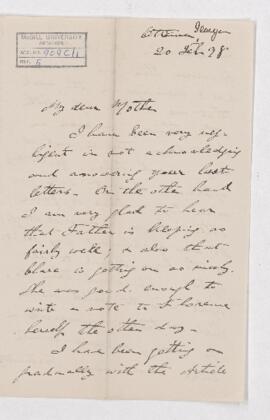 McGILL UNIVERSITY
ARCHIVES
ACC. NO. 909C/1
REF. 5
20 Feb 38
My dear Mother
I have been very neg-
ligent in not acknowledging
and answering your last
letters. On the other hand
I am very glad to hear
that Father is keeping so
fairly well; & also that
is getting on so nicely.
She was good enough to
write a note to Florence
herself the other day.
I have been getting on
gradually with the Article